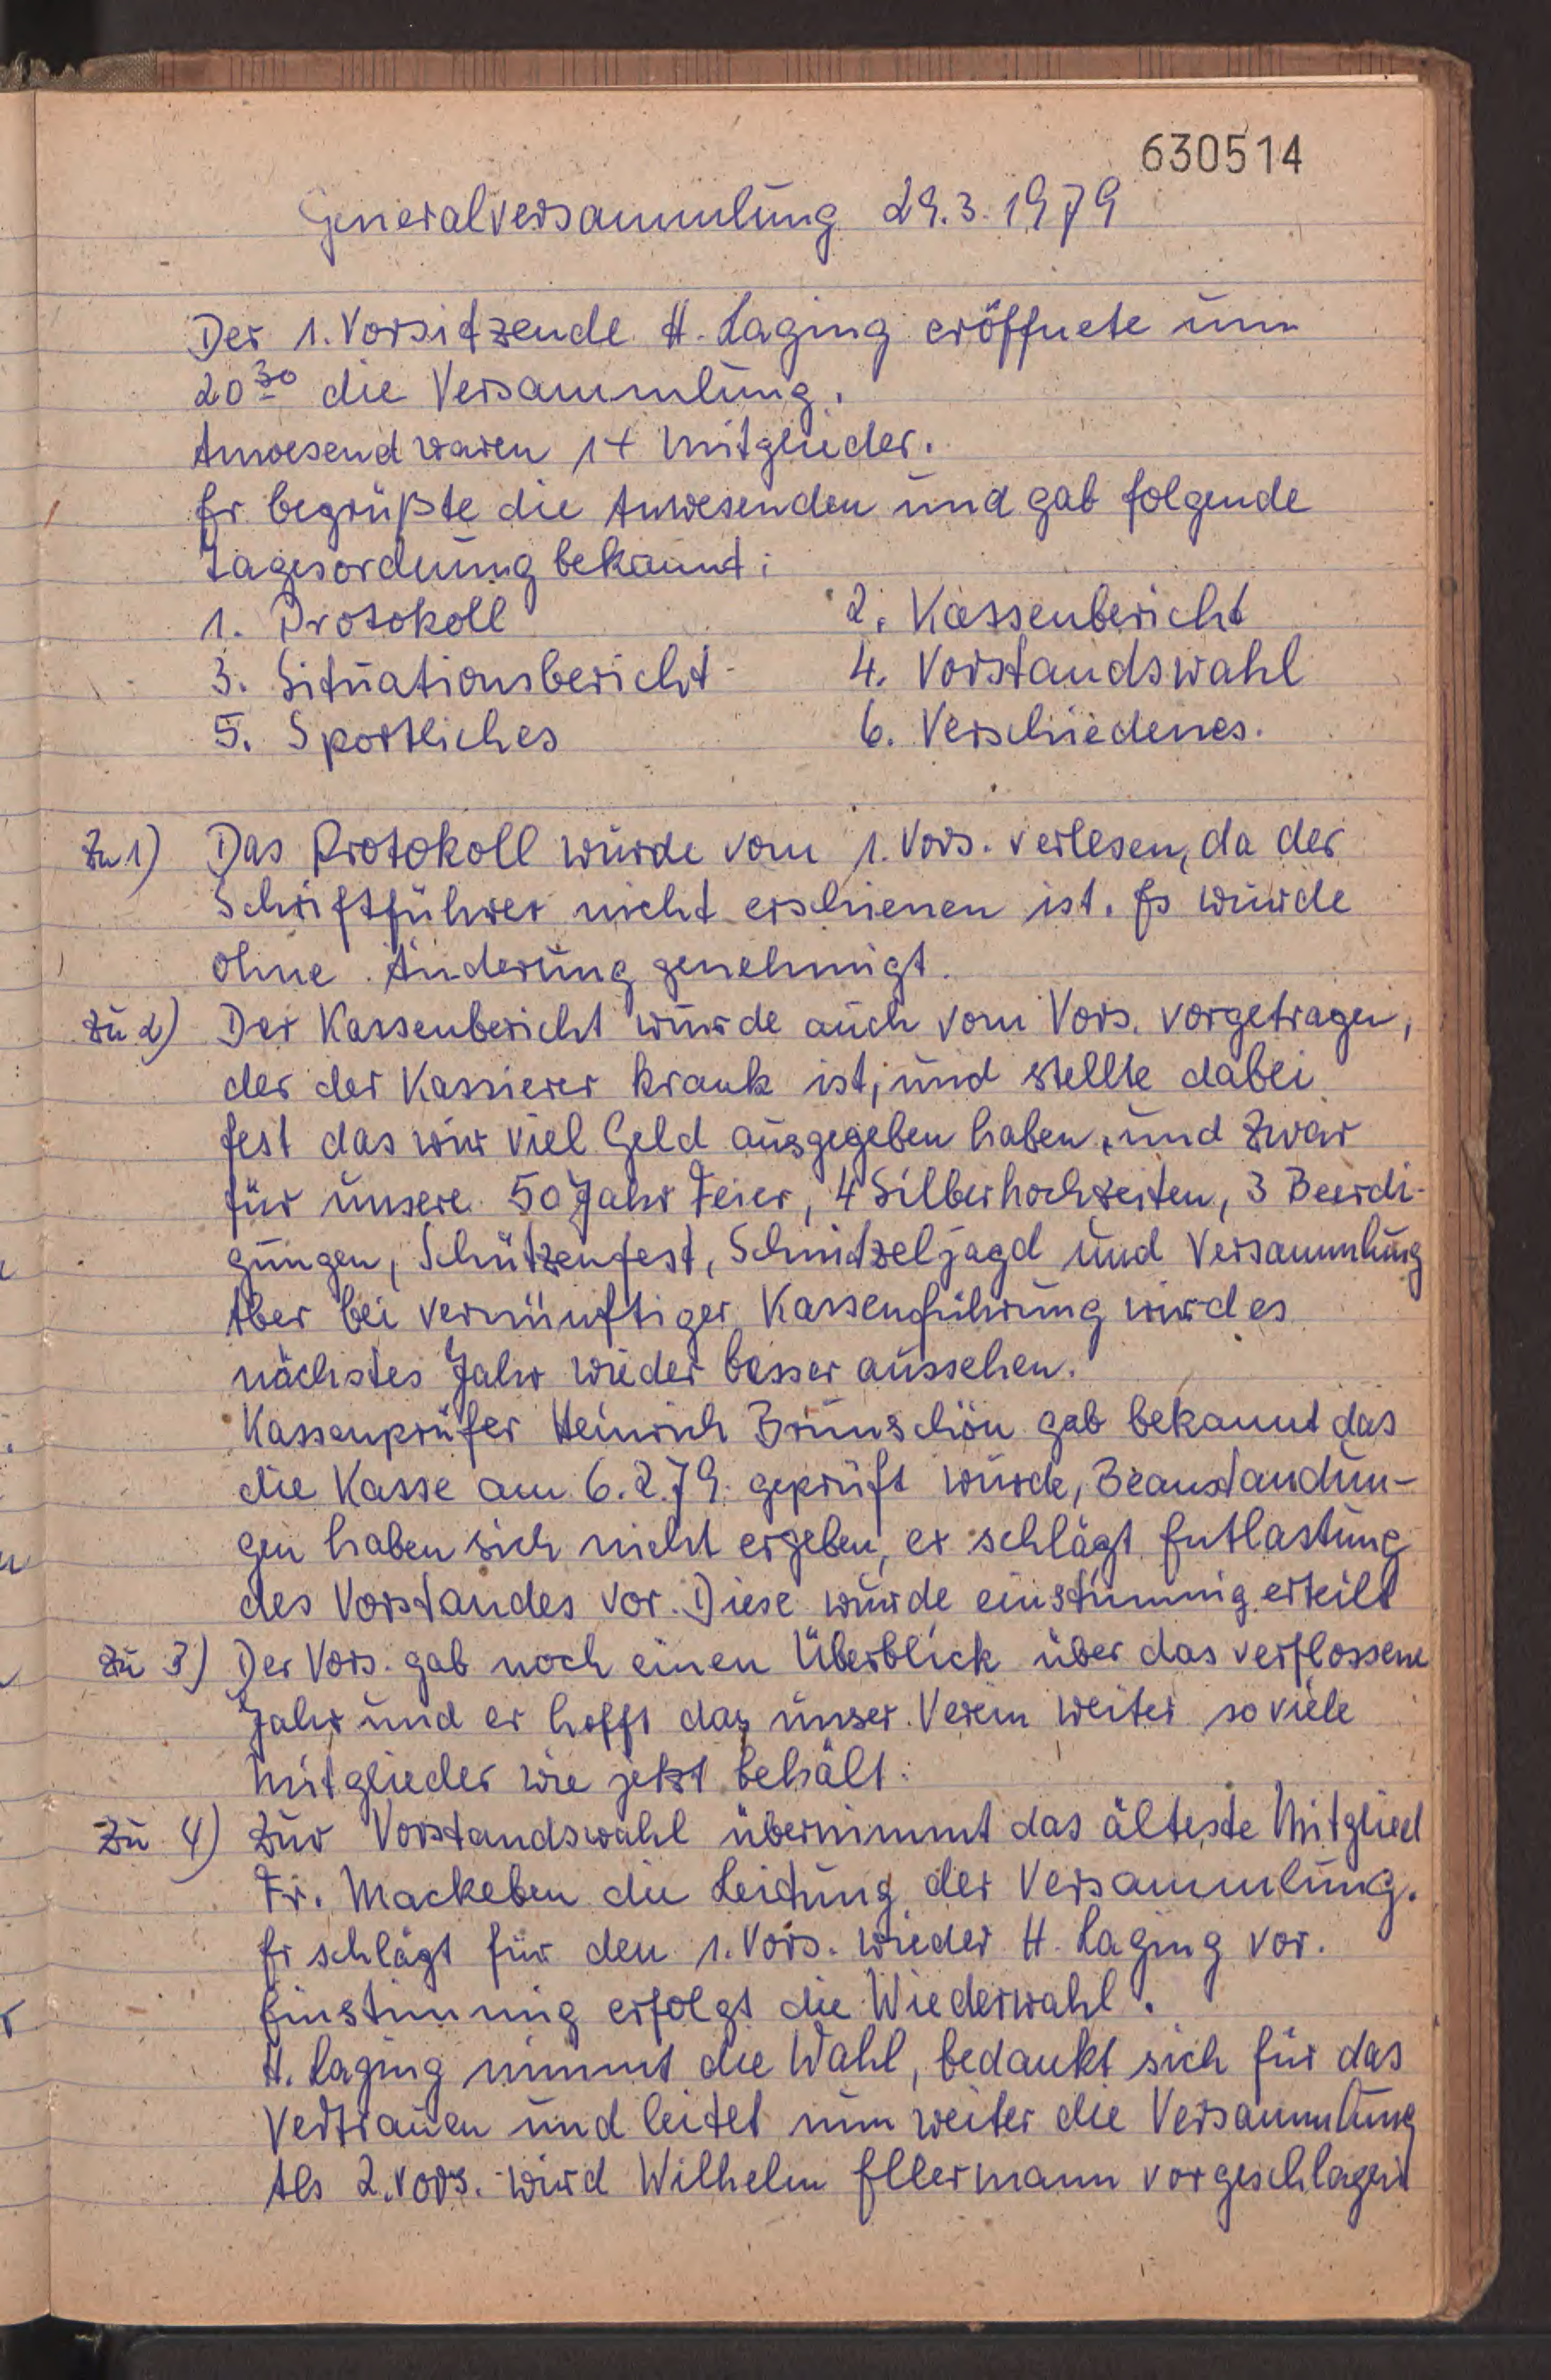 630514
Generalversammlung 29.3.1979
Der 1. Vorsitzende H. Laging eröffnete um
20³⁰ die Versammlung.
Anwesend waren 14 Mitglieder.
Er begrüßte die Anwesenden und gab folgende
Tagesordnung bekannt:
1. Protokoll 2. Kassenbericht
3. Situationsbericht 4. Vorstandswahl
5. Sportliches 6. Verschiedenes.
Zu 1) Das Protokoll wurde vom 1. Vors. verlesen, da der
Schriftführer nicht erschienen ist. Es wurde
ohne Änderung genehmigt.
Zu 2) Der Kassenbericht wurde auch vom Vors. vorgetragen,
der der Kassierer krank ist, und stellte dabei
fest das wir viel Geld ausgegeben haben, und zwar
für unsere 50 Jahr Feier, 4 Silberhochzeiten, 3 Beerdi-
gungen, Schützenfest, Schnitzeljagd und Versammlung
Aber bei vernünftiger Kassenführung wird es
nächstes Jahr wieder besser aussehen.
Kassenprüfer Heinrich Brunschön gab bekannt das
die Kasse am 6.2.79. geprüft wurde, Beanstandun-
gen haben sich nicht ergeben, er schlägt Entlastung
des Vorstandes vor. Diese wurde einstimmig erteilt
Zu 3) Der Vors. gab noch einen Überblick über das verflossene
Jahr und er hofft das unser Verein weiter so viele
Mitglieder wie jetzt behält.
Zu 4) Zur Vorstandswahl übernimmt das älteste Mitglied
Fr. Mackeben die Leitung der Versammlung.
Er schlägt für den 1. Vors. wieder H. Laging vor.
Einstimmig erfolgt die Wiederwahl.
H. Laging nimmt die Wahl, bedankt sich für das
Vertrauen und leitet nun weiter die Versammlung
Als 2. Vors. wird Wilhelm Ellermann vorgeschlagen